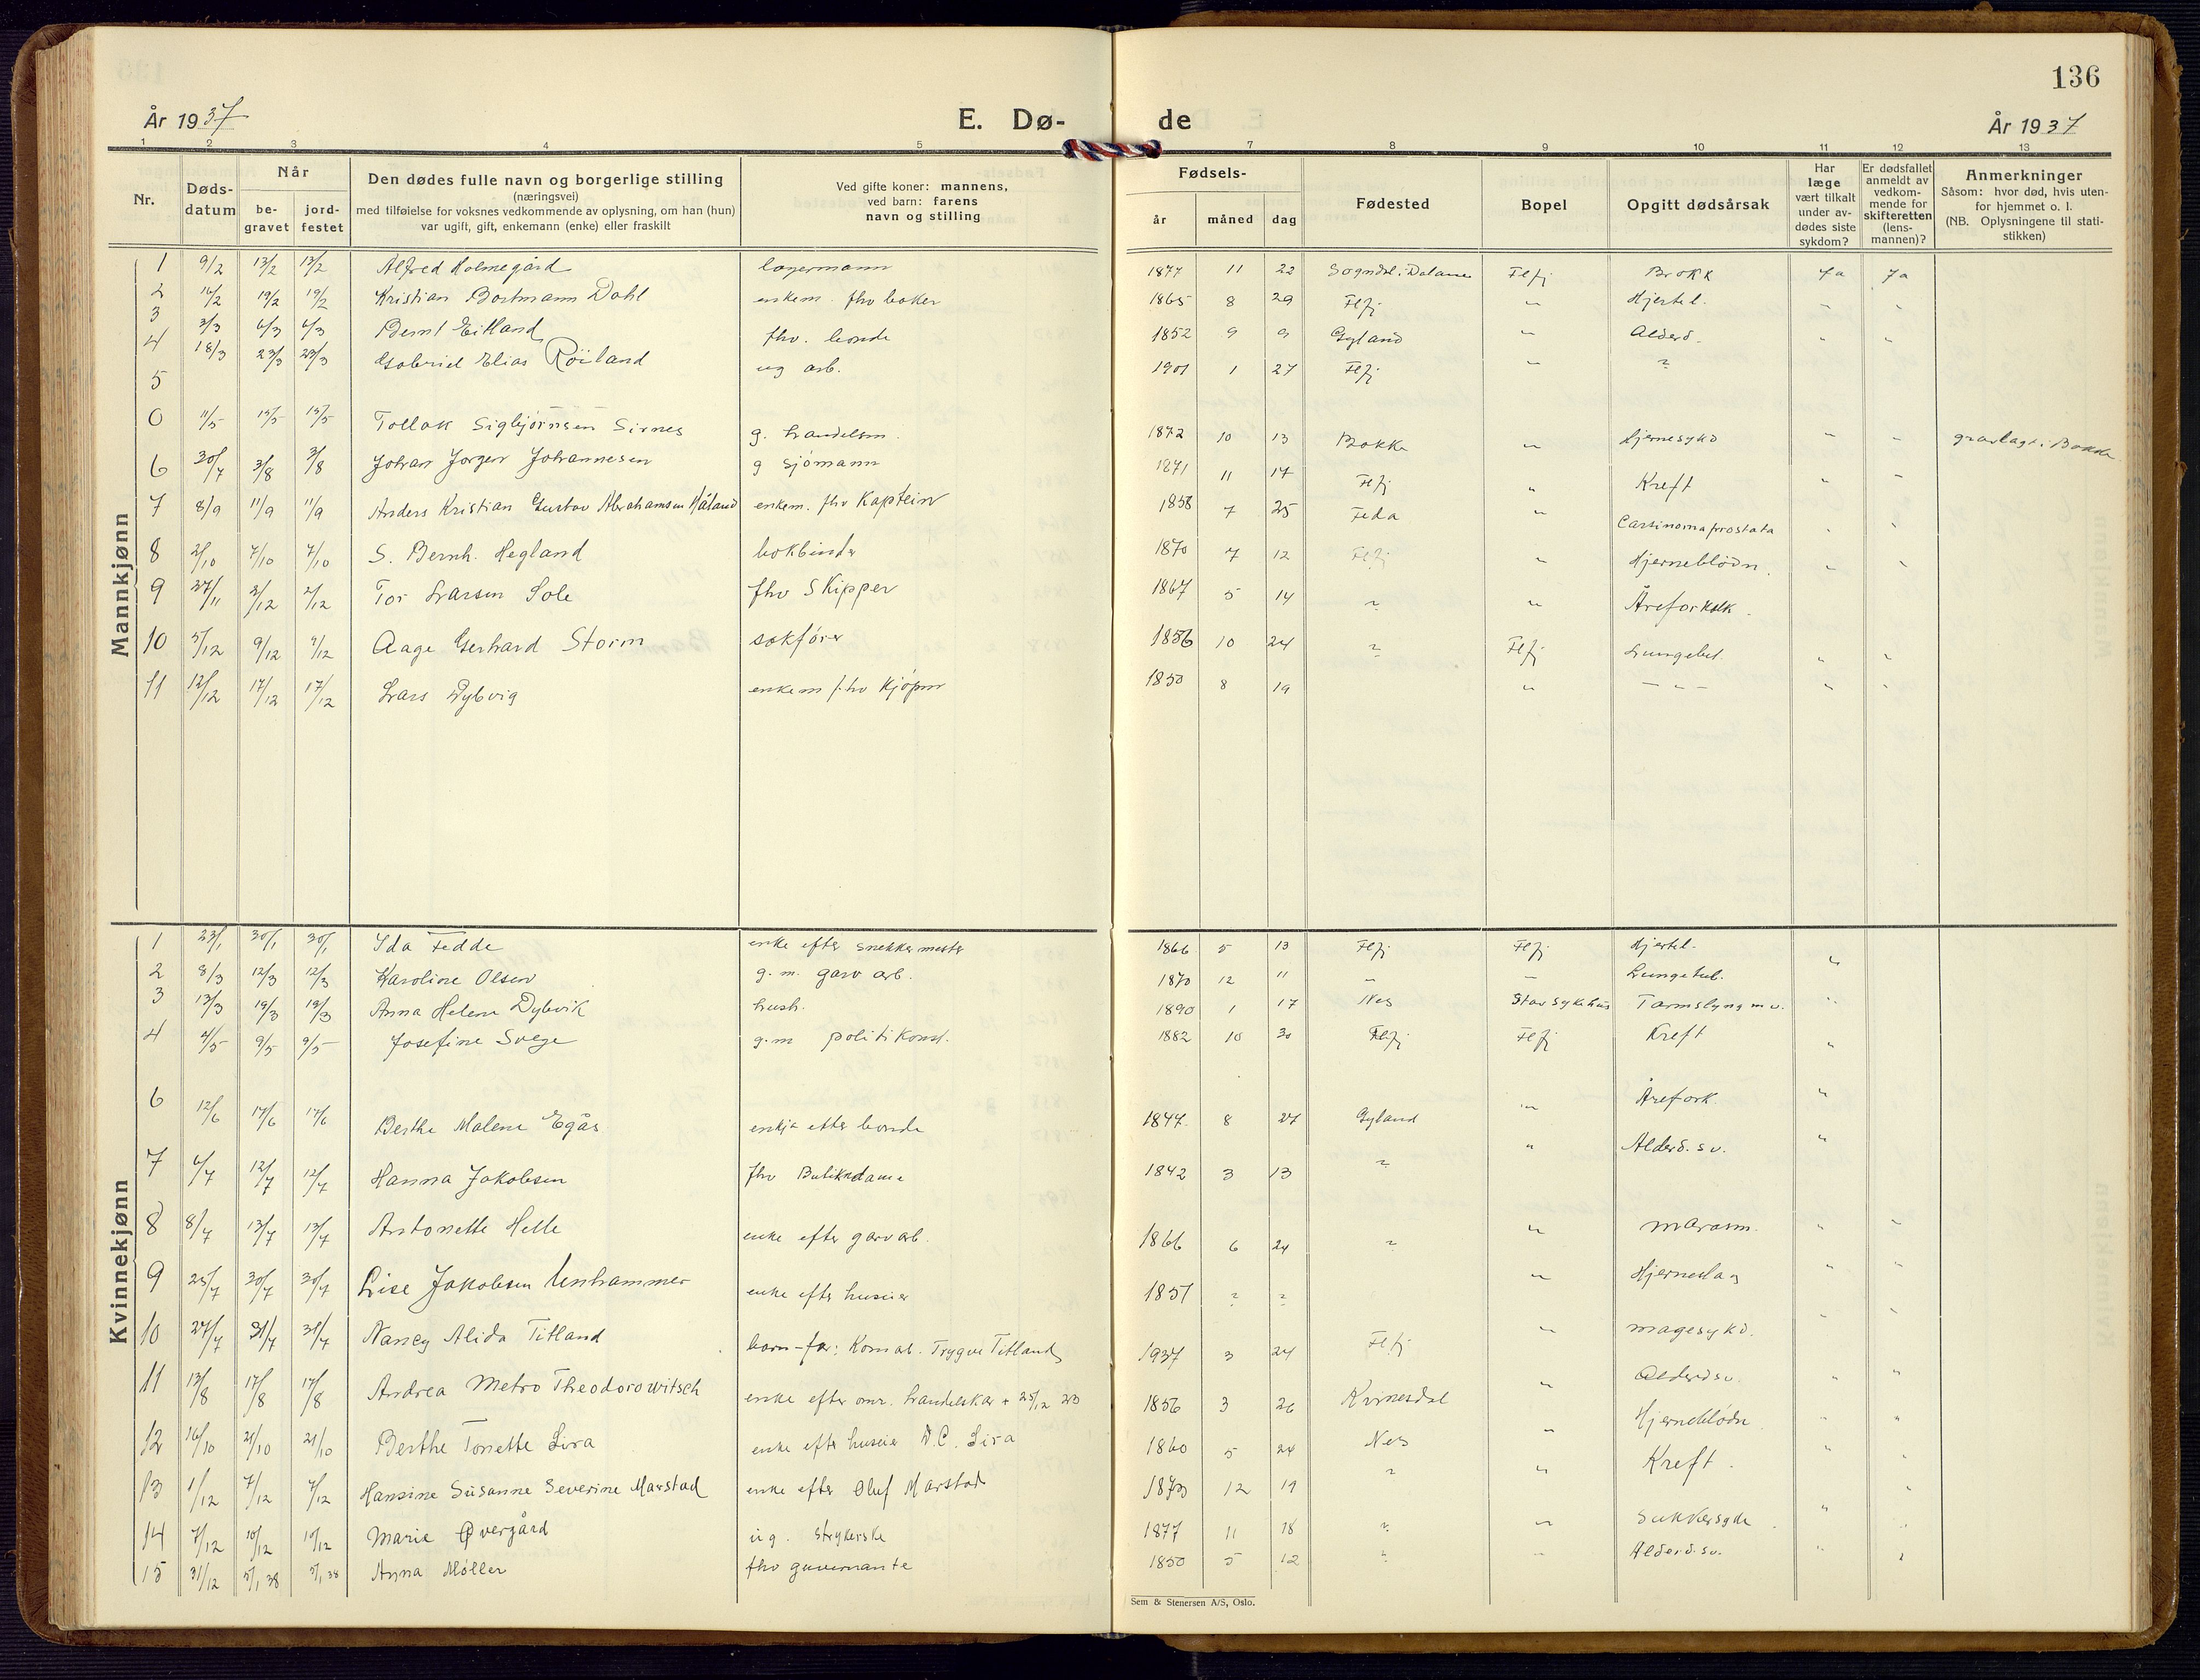 136
År 1937 E. Dø- de År 1937
1 2 3 4 5 7 8 9 10 11 12 13
Nr. Døds-datum Når be-gravet jord-festet Den dødes fulle navn og borgerlige stilling (næringsvei) med tilføielse for voksnes vedkommende av oplysning, om han (hun) var ugift, gift, enkemann (enke) eller fraskilt Ved gifte koner: mannens, ved barn: farens navn og stilling Fødsels- år måned dag Fødested Bopel Opgitt dødsårsak Har læge vært tilkalt under av-dødes siste sykdom? Er dødsfallet anmeldt av vedkom-mende for skifteretten (lens-mannen)? Anmerkninger Såsom: hvor død, hvis uten-for hjemmet o. l. (NB. Oplysningene til stati-stikken)
Mannkjønn
1 9/2 13/2 13/2 Alfred Holmegård lagermann 1877 11 22 Sogndal i Dalane Flfj Brokk Ja Ja
2 14/2 19/2 19/2 Kristian Bortmann Dahl enkem. fhv baker 1865 8 29 Flfj " Hjertel. " "
3 3/3 6/3 6/3 Bernt Eitland fhv. bonde 1852 9 9 Gyland " Alderd. " "
4 18/3 23/3 23/3 Gabriel Elias Röiland ug arb. 1901 1 27 Flfj " "
5
0 11/5 15/5 15/5 Tollak Sigbjørnsen Sirnes g. handelsm. 1872 10 13 Bakke " Hjernesykd " " gravlagt i Bakke
6 30/7 3/8 3/8 Johan Jørgen Johannesen g sjømann 1871 11 14 Flfj " Kreft " "
7 8/9 11/9 11/9 Anders Kristian Gustav Abrahamsen Håland enkem. fhv Kaptein 1858 7 25 Feda " Carsinoma prostata " "
8 2/10 7/10 7/10 S. Bernh. Hegland bokbinder 1870 7 12 Flfj " Hjerneblødn. " "
9 27/11 2/12 2/12 Tor Larsen Sole fhv Skipper 1867 5 14 " " Åreforkalk.
10 5/12 9/12 9/12 Aage Gerhard Storm sakfører 1856 10 24 " Flfj Lungebet. " "
11 12/12 17/12 17/12 Lars Dybvig enkem fhv Kjøpm 1850 8 19 " - " - " "
Kvinnekjønn
1 23/1 30/1 30/1 Ida Fedde enke efter snekkermester 1866 5 13 Flfj Flfj Hjertel. "
2 8/3 12/3 12/3 Karoline Olsen g. m. garv arb. 1870 12 11 " " Lungetub.
3 13/3 19/3 19/3 Anna Helene Dybvik hush. 1890 1 17 Nes Stav sykehus Tarmslyng m v. "
4 4/5 9/5 9/5 Josefine Svege g.m politikonst. 1882 10 30 Flfj Flfj Kreft "
6 12/6 17/6 17/6 Berthe Malene Egås enkja efter bonde 1847 8 27 Gyland " Årefork. "
7 6/7 12/7 12/7 Hanna Jakobsen fhv Butikkdame 1842 3 13 " " Alderd. sv. "
8 8/7 13/7 13/7 Antonette Helle enke efter garvarb. 1866 6 24 " " Marasm. " "
9 25/7 30/7 30/7 Lise Jakobsen Uenhammer enke efter huseier 1851 " " " Hjerneslag " "
10 27/7 31/7 31/7 Nancy Alida Titland barn-far: Komarb. Trygve Titland 1937 3 24 Flfj " magesykd. " "
11 13/8 17/8 17/8 Andrea Metro Theodorowitsch enke efter omr. handelskar + 25/12 23 1856 3 26 Kvinesdal " Alderd sv. " "
12 16/10 21/10 21/10 Berthe Tonette Lira enke efter huseier D.C. Lira 1860 5 24 Nes " Hjerneblødn " "
13 1/12 7/12 7/12 Hansine Susanne Severine Marstad enke efter Oluf Marstad 1870 12 19 " " Kreft. " "
14 7/12 10/12 10/12 Marie Øvergård ug. strykerske 1877 11 18 " " Sukkersyke " "
15 31/12 5/1 38 5/1 38 Anna Møller fhv guvernante 1850 5 12 " " Alderd. sv. " "
Sem & Stenersen A/S, Oslo.